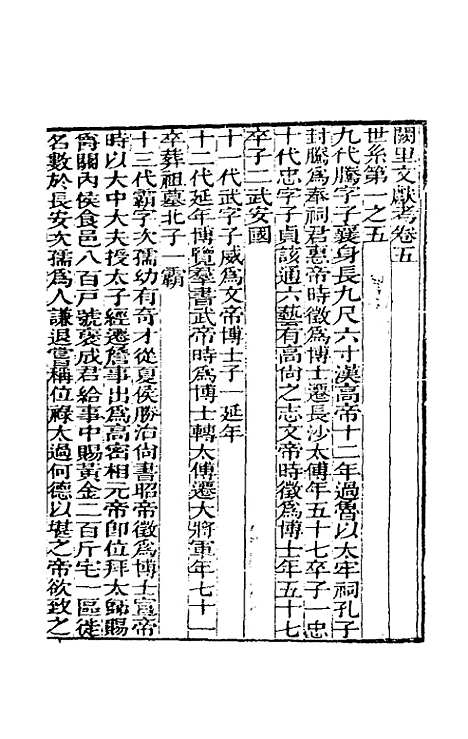 闕里文獻考卷五
世系第一之五
九代騰字子襄身長九尺六寸漢高帝十二年過魯以太牢祠孔子
封騰爲奉祠君惠帝時徵爲博士遷長沙太傅年五十七卒子一忠
十代忠字子貞該通六藝有高尚之志文帝時徵爲博士年五十七
卒子二武安國
十一代武字子威爲文帝博士子一延年
十二代延年博覽羣書武帝時爲博士轉太傅遷大將軍年七十一
卒葬祖墓北子一霸
十三代霸字次孺幼有奇才從夏侯勝治尚書昭帝徵爲博士宣帝
時以大中大夫授太子經遷詹事出爲高密相元帝卽位拜太師賜
爵關內侯食邑八百戸號襃成君給事中賜黃金二百斤宅一區徙
名數於長安次孺爲人謙退嘗稱位祿太過何德以堪之帝欲致之